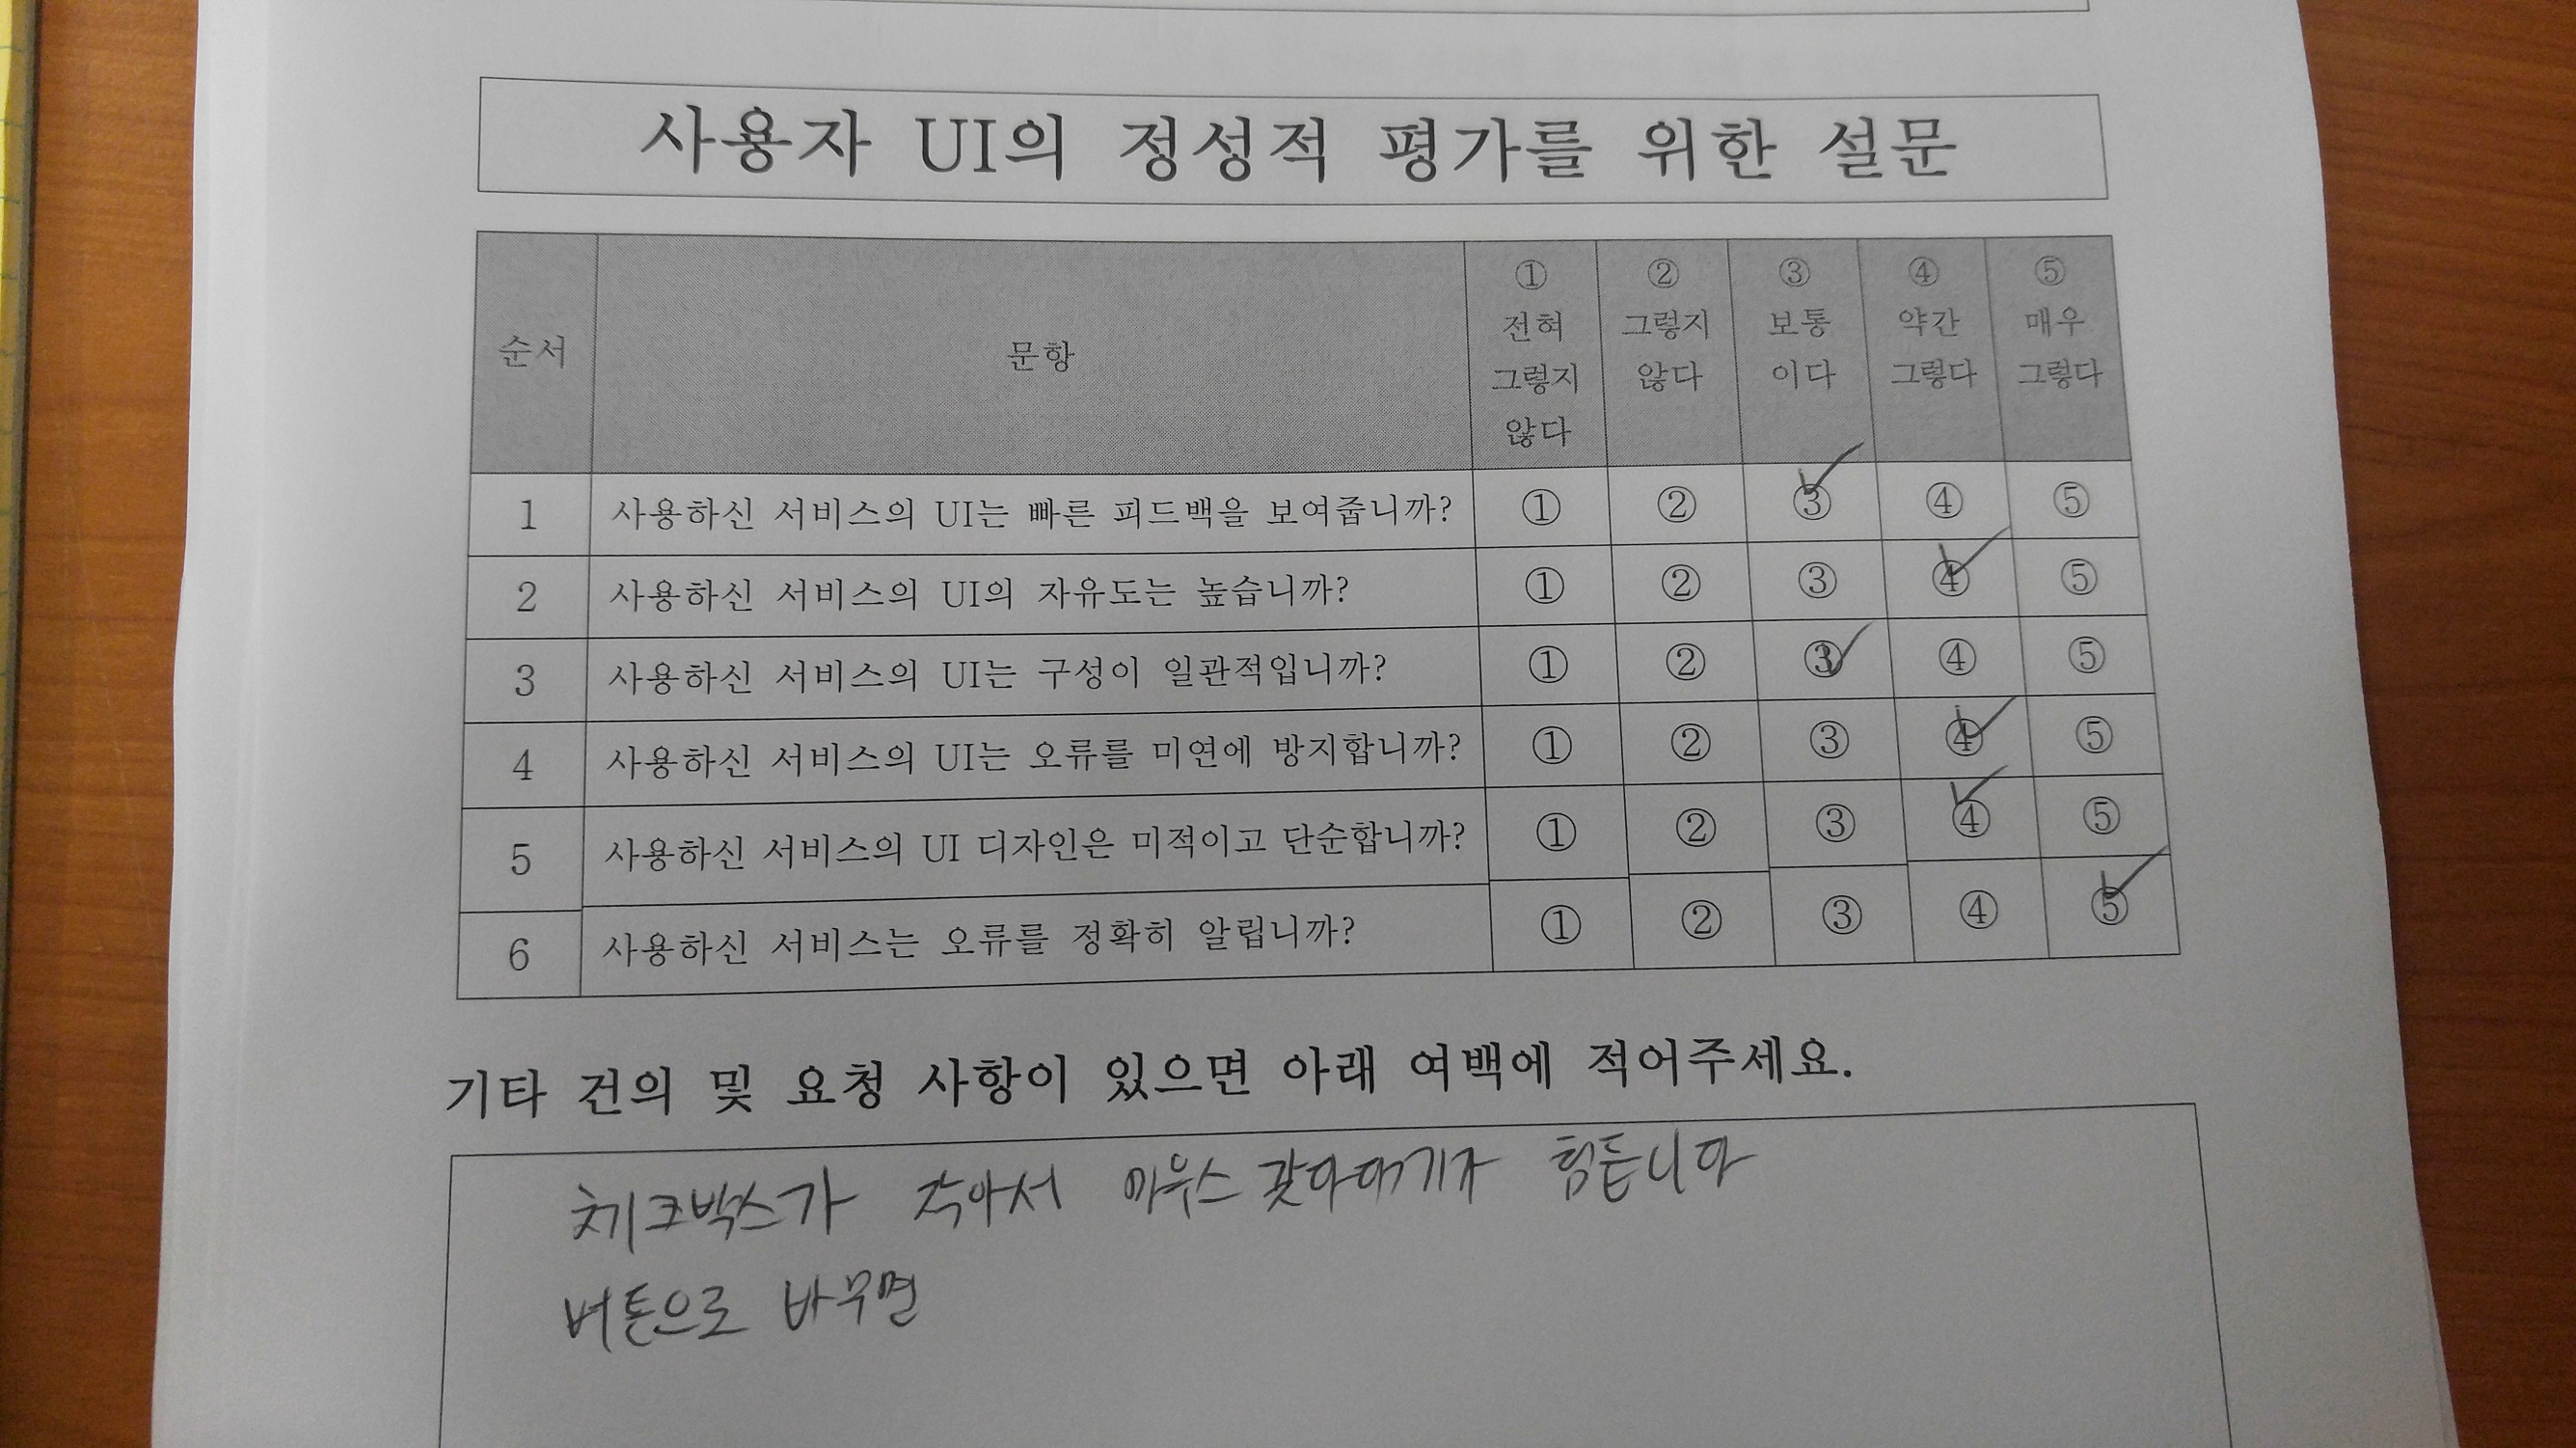 사용자 UI의 정성적 평가를 위한 설문
순서 문항 ① 전혀 그렇지 않다 ② 그렇지 않다 ③ 보통이다 ④ 약간 그렇다 ⑤ 매우 그렇다
1 사용하신 서비스의 UI는 빠른 피드백을 보여줍니까? ① ② ③ ④ ⑤
2 사용하신 서비스의 UI의 자유도는 높습니까? ① ② ③ ④ ⑤
3 사용하신 서비스의 UI는 구성이 일관적입니까? ① ② ③ ④ ⑤
4 사용하신 서비스의 UI는 오류를 미연에 방지합니까? ① ② ③ ④ ⑤
5 사용하신 서비스의 UI 디자인은 미적이고 단순합니까? ① ② ③ ④ ⑤
6 사용하신 서비스는 오류를 정확히 알립니까? ① ② ③ ④ ⑤
기타 건의 및 요청 사항이 있으면 아래 여백에 적어주세요.
체크박스가 작아서 마우스 갖다대기가 힘듭니다
버튼으로 바꾸면